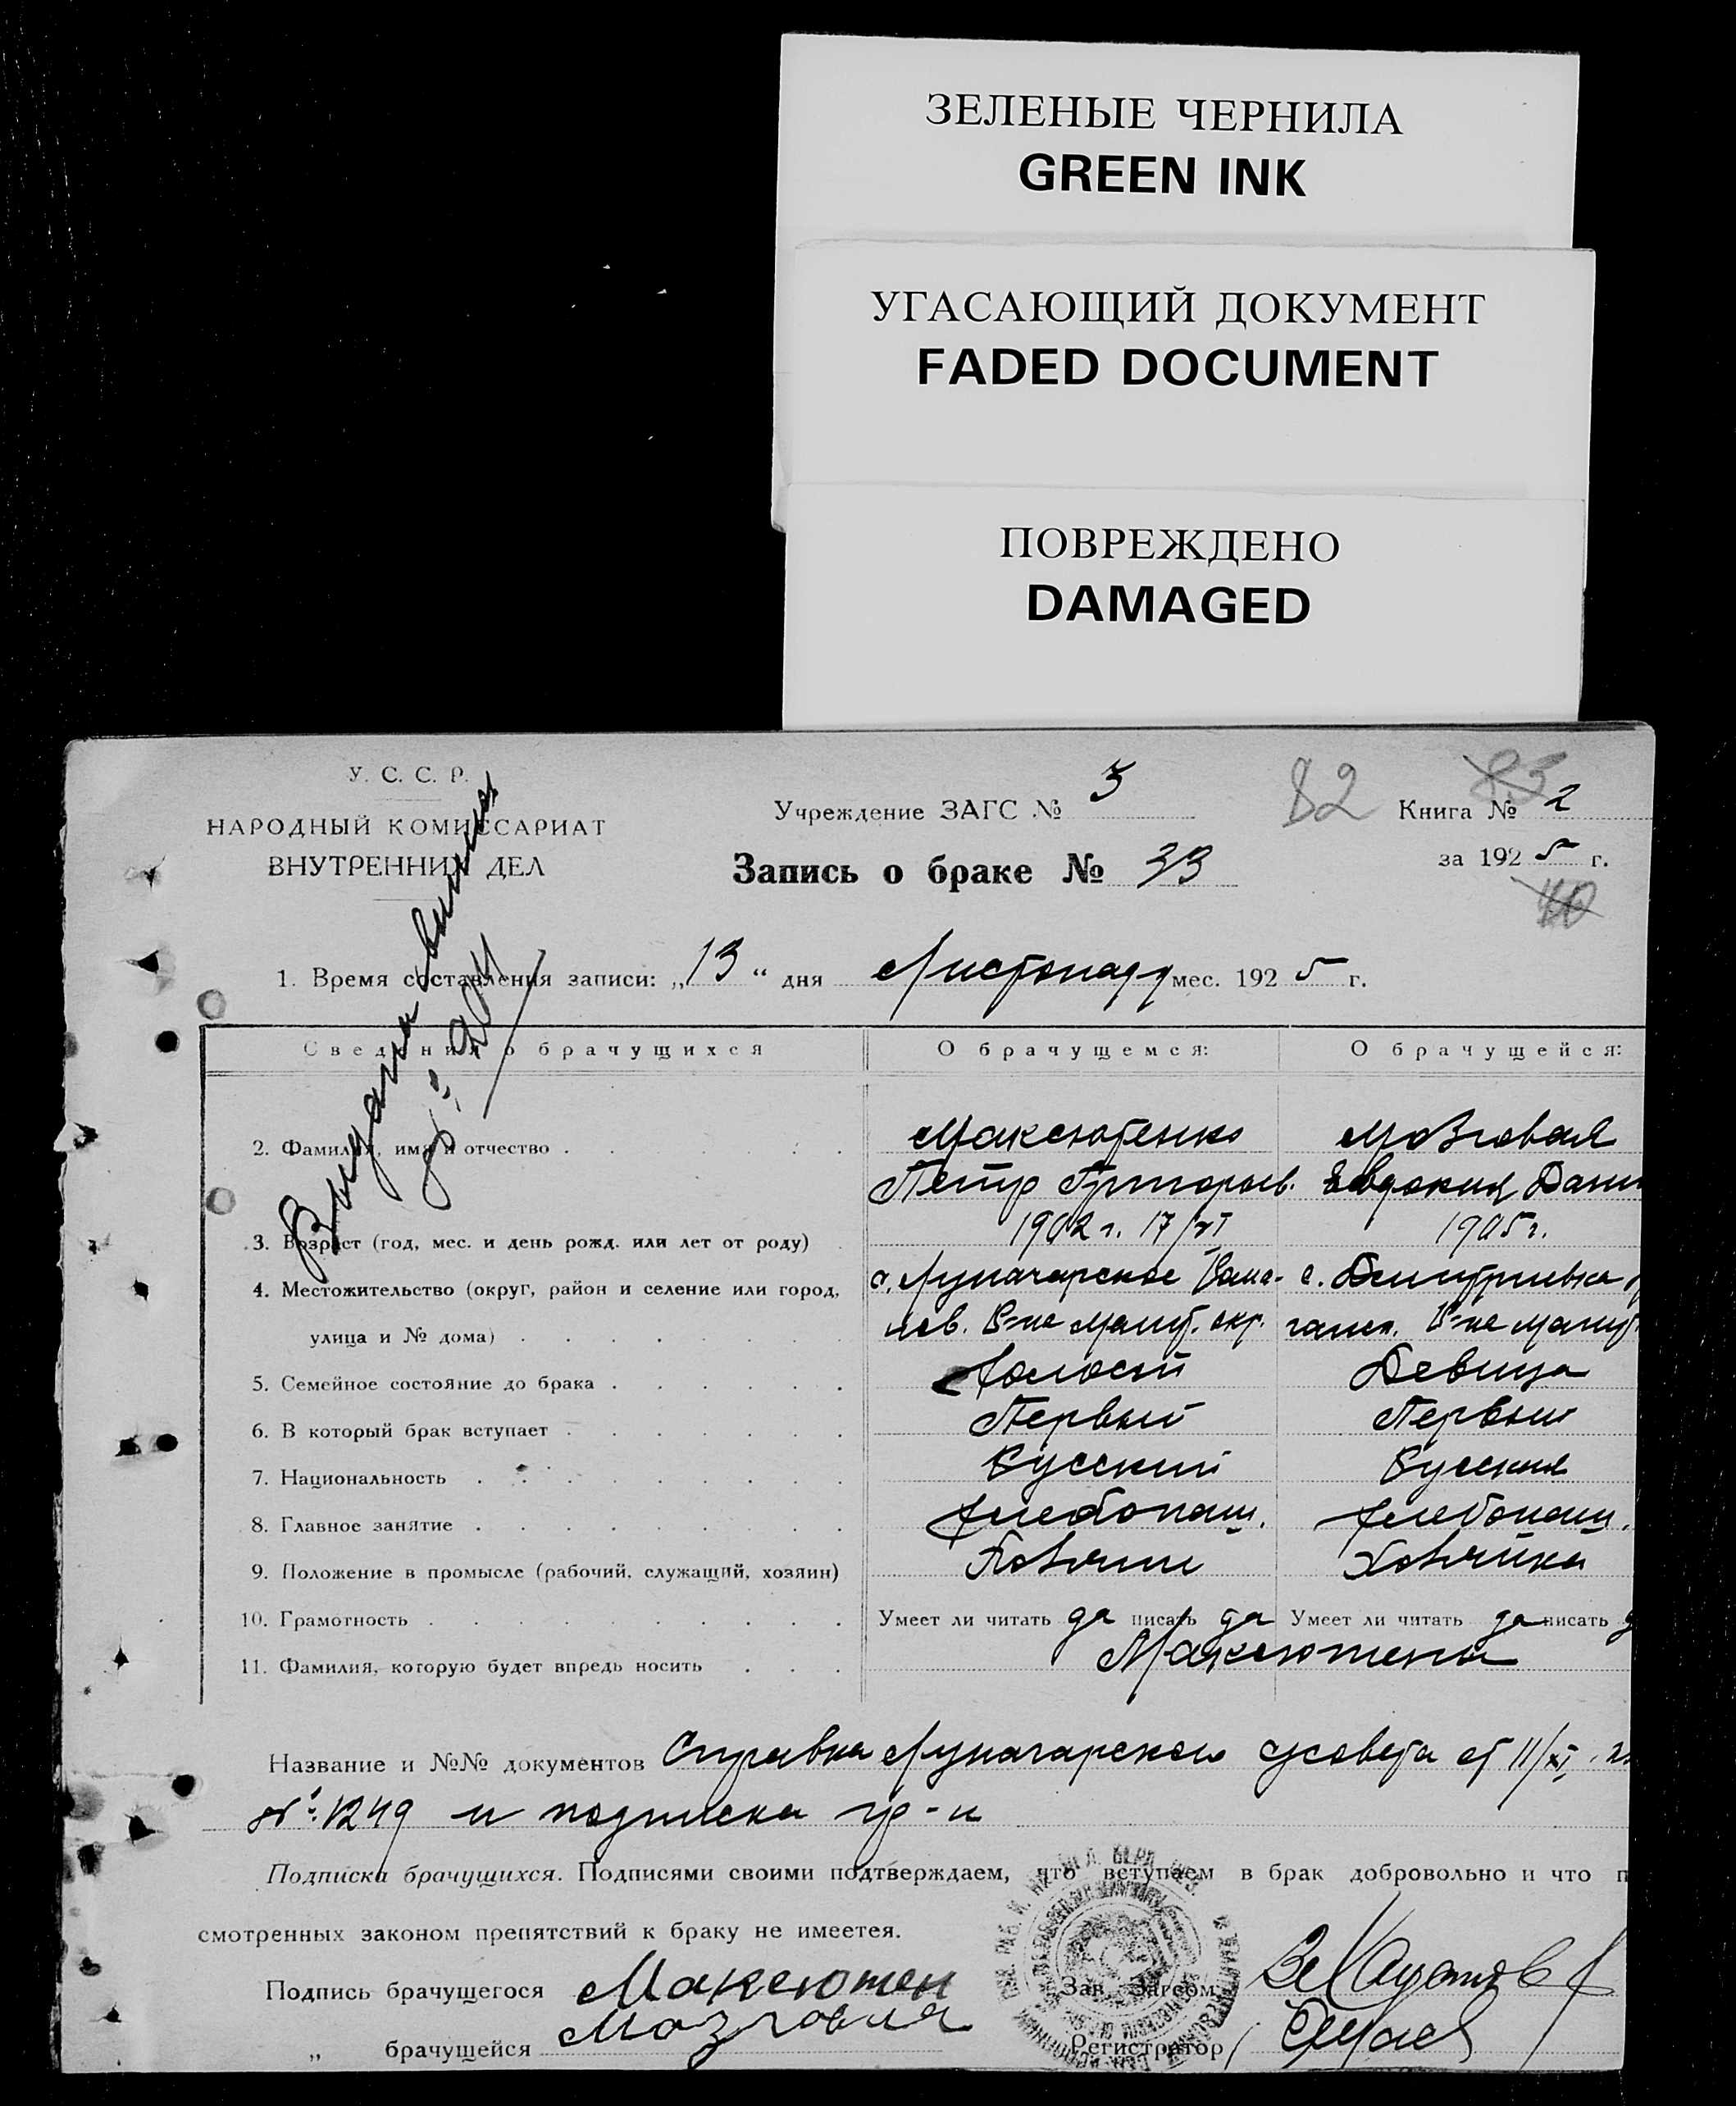 ЗЕЛЕНЫЕ ЧЕРНИЛА
GREEN INK
УГАСАЮЩИЙ ДОКУМЕНТ
FADED DOCUMENT
ПОВРЕЖДЕНО
DAMAGED
У. С. С. Р.
НАРОДНЫЙ КОМИССАРИАТ
ВНУТРЕННИХ ДЕЛ
Учреждение ЗАГС № 3
82
85
Книга № 2
за 1925 г.
Запись о браке № 33
40
1. Время составления записи: „13“ дня Листопада мес. 1925 г.
Сведения о брачущихся
О брачущемся:
О брачущейся:
2. Фамилия, имя и отчество
Максютенко
Мозговая
Петр Григорьев.
Евдокия Дани
3. Возраст (год, мес. и день рожд. или лет от роду)
1902 г. 17/VI
1905 г.
4. Местожительство (округ, район и селение или город,
с. Луначарское
с. Дмитриевка
улица и № дома)
нов. Р-на Мелит. окр.
Р-на Мелит.
5. Семейное состояние до брака
Холост
Девица
6. В который брак вступает
Первый
Первый
7. Национальность
Русский
Русская
8. Главное занятие
Хлебопаш.
Хлебопаш.
9. Положение в промысле (рабочий, служащий, хозяин)
Хозяин
Хозяйка
10. Грамотность
Умеет ли читать да писать да
Умеет ли читать да писать д
11. Фамилия, которую будет впредь носить
Максютенко
Название и №№ документов Справка Луначарского с/совета от 11/XI
№ 1249 и подписка гр-н
Подписка брачущихся. Подписями своими подтверждаем, что вступаем в брак добровольно и что п
смотренных законом препятствий к браку не имеетея.
Подпись брачущегося Максютен
Зав. Загсом
„ брачущейся Мозговая
Регистратор